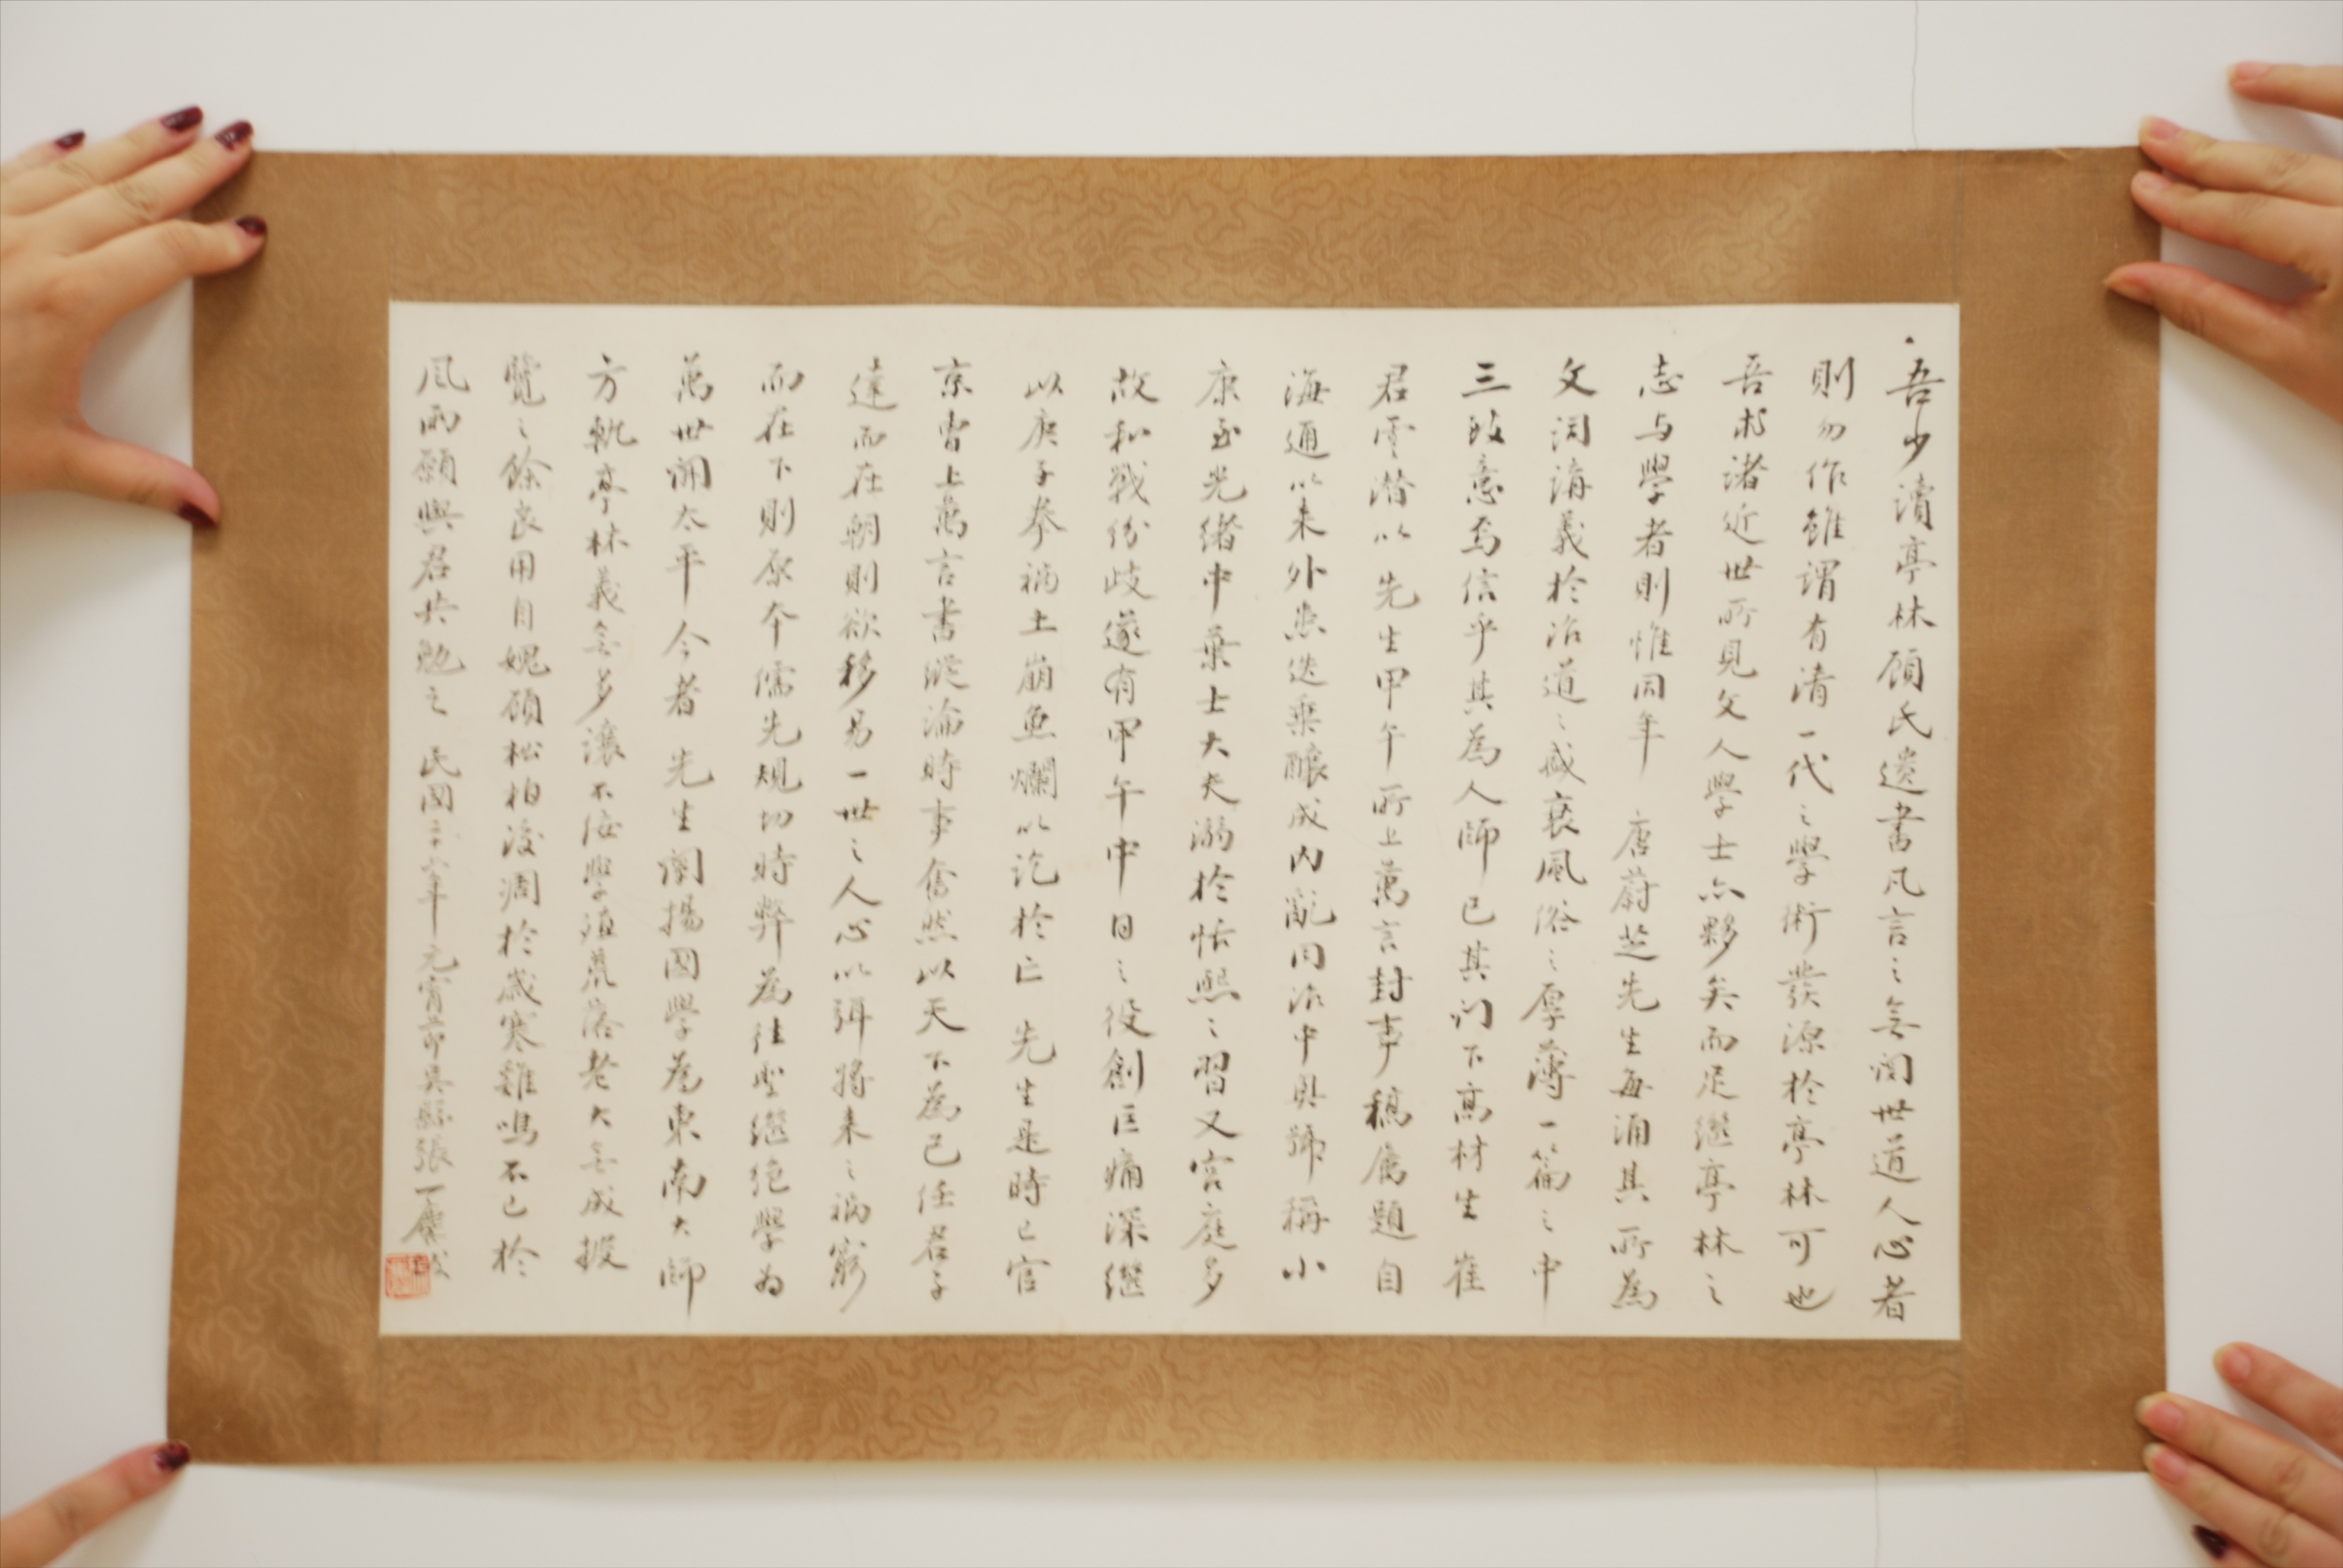 吾少讀亭林顧氏遺書凡言之無關世道人心者
則勿作雖謂有清一代之學術發源於亭林可也
吾求諸近世所見文人學士亦夥矣而足繼亭林之
志与學者則惟同年 唐蔚芝先生每誦其所為
文詞講義於治道之盛衰風俗之厚薄一篇之中
三致意焉信乎其為人師已其門下高材生崔
君雲潛以先生甲午所上萬言封事稿屬題自
海通以来外患迭乘釀成内亂同治中興號稱小
康至光緒中葉士大夫溺於恬熙之習又宫庭多
故和戰紛歧遂有甲午中日之役創巨痛深繼
以庚子拳禍土崩魚爛以訖於亡 先生是時已官
京曹上萬言書縱論時事奮然以天下為己任君子
達而在朝則欲移易一世之人心以弭將来之禍窮
而在下則原本儒先規切時弊為往聖繼絶學為
萬世開太平今者 先生闡揚國學為東南大師
方軌亭林義無多讓不佞學殖荒落老大無成披
覽之餘良用自媿顧松柏後凋於歲寒雞鳴不已於
風雨願與君共勉之 民國二十六年元宵節吳縣張一麐跋